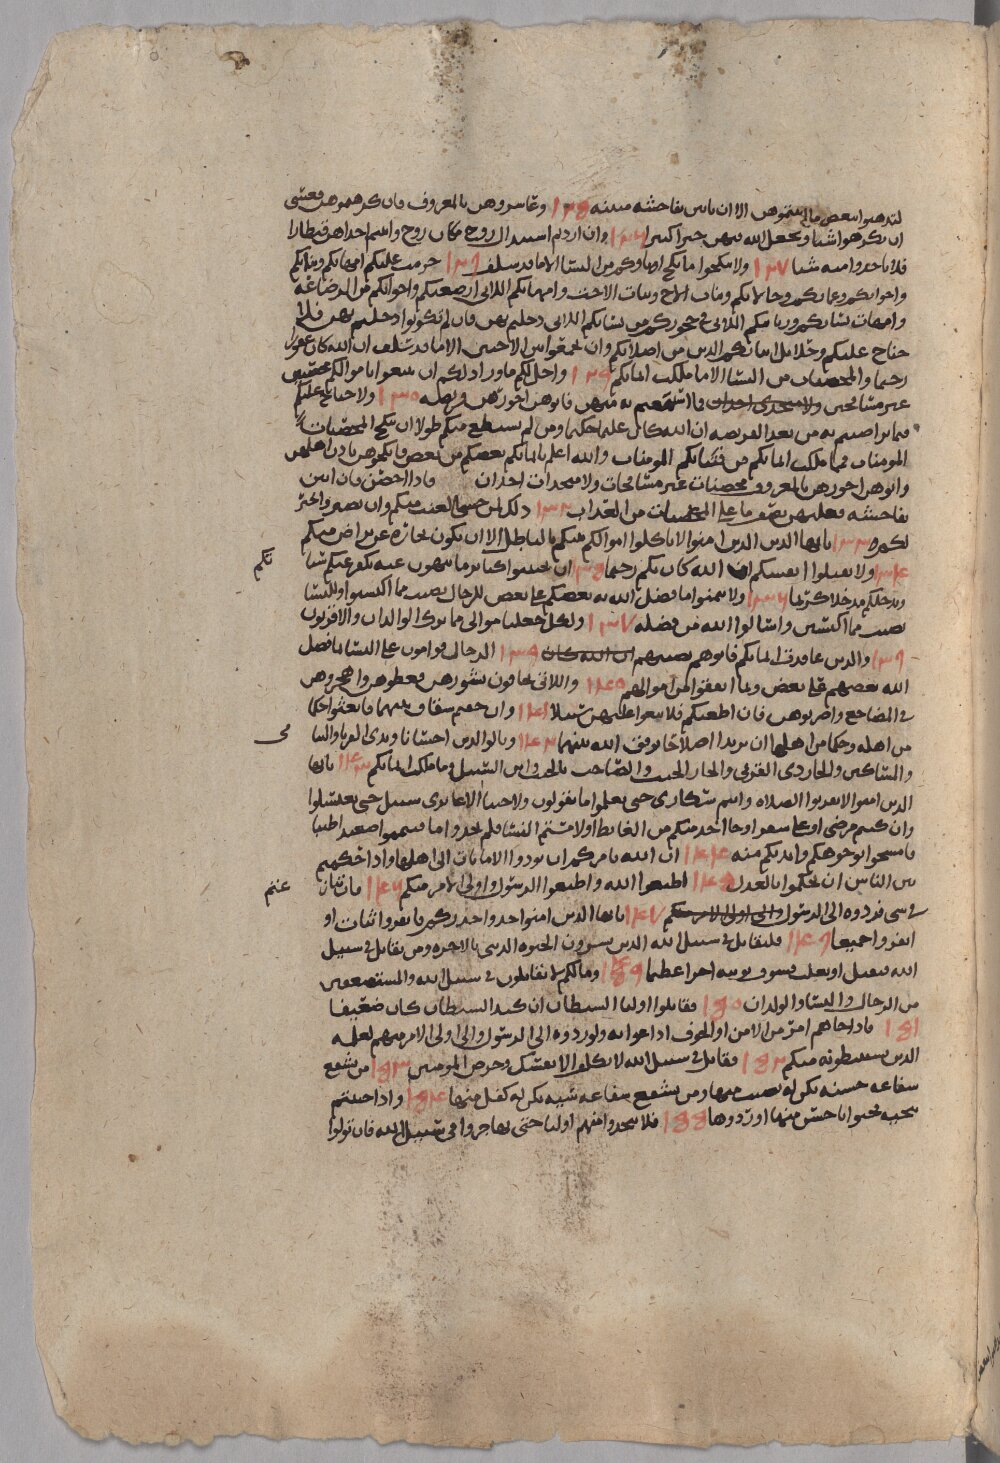 لتدهبوا ببعض ما اتيتموهن الا ان ياتين بفاحشه مبينه ١٣٥ وعاشروهن بالمعروف فان كرهتموهن فعسى
ان تكرهوا شيا ويجعل الله فيهن خيرا كثيرا ١٣٦ وان اردتم استبدال زوج مكان زوج واتيتم احداهن قنطارا
فلا تاخدوا منه شيا ١٣٧ ولا تنكحوا ما نكح اباوكم من النسا الا ما قد سلف ١٣٩ حرمت عليكم امهاتكم وبناتكم
واخواتكم وعماتكم وخالاتكم وبنات الاخ وبنات الاخت وامهاتكم اللاتي ارضعنكم واخواتكم من الرضاعة
وامهات نسائكم وربائبكم اللاتي في حجوركم من نسائكم اللاتي دخلتم بهن فان لم تكونوا دخلتم بهن فلا
جناح عليكم وحلائل ابنائكم الدين من اصلابكم وان تجمعوا بين الاختين الا ما قد سلف ان الله كان غفورا
رحيما والمحصنات من النسا الا ما ملكت ايمانكم واحل لكم ما ورا دلكم ان تبتغوا باموالكم محصنين
غير مسافحين ولا متخدي اخدان فما استمتعتم به منهن فاتوهن اجورهن فريضه ١٣٠ ولا جناح عليكم
فيما تراضيتم به من بعد الفريضه ان الله كان عليما حكيما ومن لم يستطع منكم طولا ان ينكح المحصنات
المومنات فمما ملكت ايمانكم من فتياتكم المومنات والله اعلم بايمانكم بعضكم من بعض فانكحوهن بادن اهلهن
واتوهن اجورهن بالمعروف محصنات غير مسافحات ولا متخدات اخدان فادا احصن فان اتين
بفاحشه فعليهن نصف ما على المحصنات من العداب ١٣٢ دلك لمن خشي العنت منكم وان تصبروا خير
لكم ١٣٣ يايها الدين امنوا لا تاكلوا اموالكم بينكم بالباطل الا ان تكون تجارة عن تراض منكم
١٣٤ ولا تقتلوا انفسكم ان الله كان بكم رحيما ١٣٥ ان تجتنبوا كبائر ما تنهون عنه نكفر عنكم سيا
تكم
وندخلكم مدخلا كريما ١٣٦ ولا تتمنوا ما فضل الله به بعضكم على بعض للرجال نصيب مما اكتسبوا وللنسا
نصيب مما اكتسبن واسالوا الله من فضله ١٣٧ ولكل جعلنا موالي مما ترك الوالدان والاقربون
١٣٩ والدين عاقدت ايمانكم فاتوهم نصيبهم ان الله كان ١٣٩ الرجال قوامون على النسا بما فضل
الله بعضهم على بعض وبما انفقوا من اموالهم ١٤٠ واللاتي تخافون نشوزهن فعظوهن واهجروهن
في المضاجع واضربوهن فان اطعنكم فلا تبغوا عليهن سبيلا ١٤١ وان خفتم شقاق بينهما فابعثوا حكما
من اهله وحكما من اهلها ان يريدا اصلاحا يوفق الله بينهما ١٤٢ وبالوالدين احسانا وبدي القربى واليتا
مى
والمساكين والجار دي القربى والجار الجنب والصاحب بالجنب وابن السبيل وما ملكت ايمانكم ١٤٣ يايها
الدين امنوا لا تقربوا الصلاه وانتم سكارى حتى تعلموا ما تقولون ولا جنبا الا عابري سبيل حتى تغتسلوا
وان كنتم مرضى او على سفر او جا احد منكم من الغائط او لامستم النسا فلم تجدوا ما فتيمموا صعيدا طيبا
فامسحوا بوجوهكم وايديكم منه ١٤٤ ان الله يامركم ان تودوا الامانات الى اهلها وادا حكمتم
بين الناس ان تحكموا بالعدل ١٤٥ اطيعوا الله واطيعوا الرسول واولي الامر منكم ١٤٦ فان تنا
زعتم
في شي فردوه الى الرسول والى اولي الامر منكم ١٤٧ يايها الدين امنوا خدوا حدركم فانفروا ثبات او
انفروا جميعا ١٤٩ فليقاتل في سبيل الله الدين يشرون الحيوه الدنيا بالاخره ومن يقاتل في سبيل
الله فيقتل او يغلب فسوف نوتيه اجرا عظيما ١٤٩ وما لكم لا تقاتلون في سبيل الله والمستضعفين
من الرجال والنسا والولدان ١٥٠ فقاتلوا اوليا الشيطان ان كيد الشيطان كان ضعيفا
١٥١ فادا جاهم امر من الامن او الخوف اداعوا به ولو ردوه الى الرسول والى اولي الامر منهم لعلمه
الدين يستنبطونه منكم ١٥٢ فقاتل في سبيل الله لا تكلف الا نفسك وحرض المومنين ١٥٣ من يشفع
شفاعه حسنه يكن له نصيب منها ومن يشفع شفاعه سيه يكن له كفل منها ١٥٤ وادا حييتم
بتحيه فحيوا باحسن منها او ردوها ١٥٥ فلا تتخدوا منهم اوليا حتى يهاجروا في سبيل الله فان تولوا